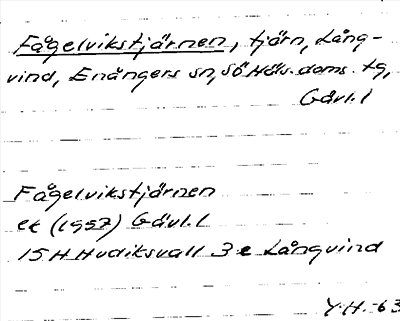 Fågelvikstjärnen, tjärn, Lång-
vind, Enångers sn, Sö Häls. doms. tg,
Gävl. l
Fågelvikstjärnen
ek (1957) Gävl. l
15 H Hudiksvall 3 e Långvind
Y.H. -63